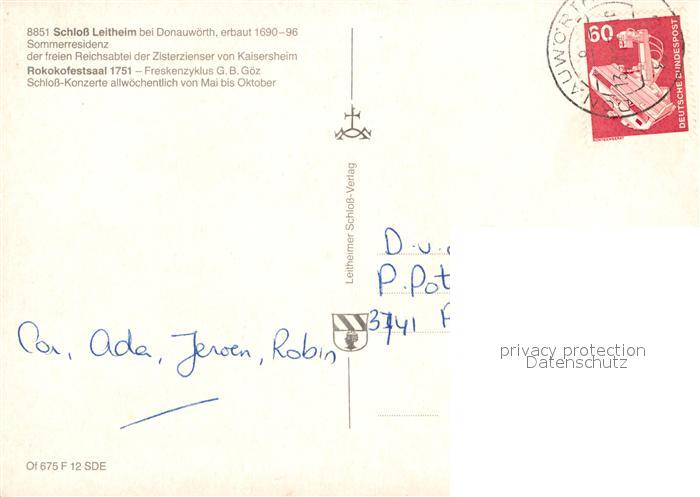 8851 Schloß Leitheim bei Donauwörth, erbaut 1690–96
Sommerresidenz
der freien Reichsabtei der Zisterzienser von Kaisersheim
Rokokofestsaal 1751 – Freskenzyklus G. B. Göz
Schloß-Konzerte allwöchentlich von Mai bis Oktober
Leitheimer Schloß-Verlag
60
DEUTSCHE BUNDESPOST
DONAUWÖRTH
D.v.
P. Pot
3741
Cor, Ada, Jeroen, Robin
privacy protection
Datenschutz
Of 675 F 12 SDE